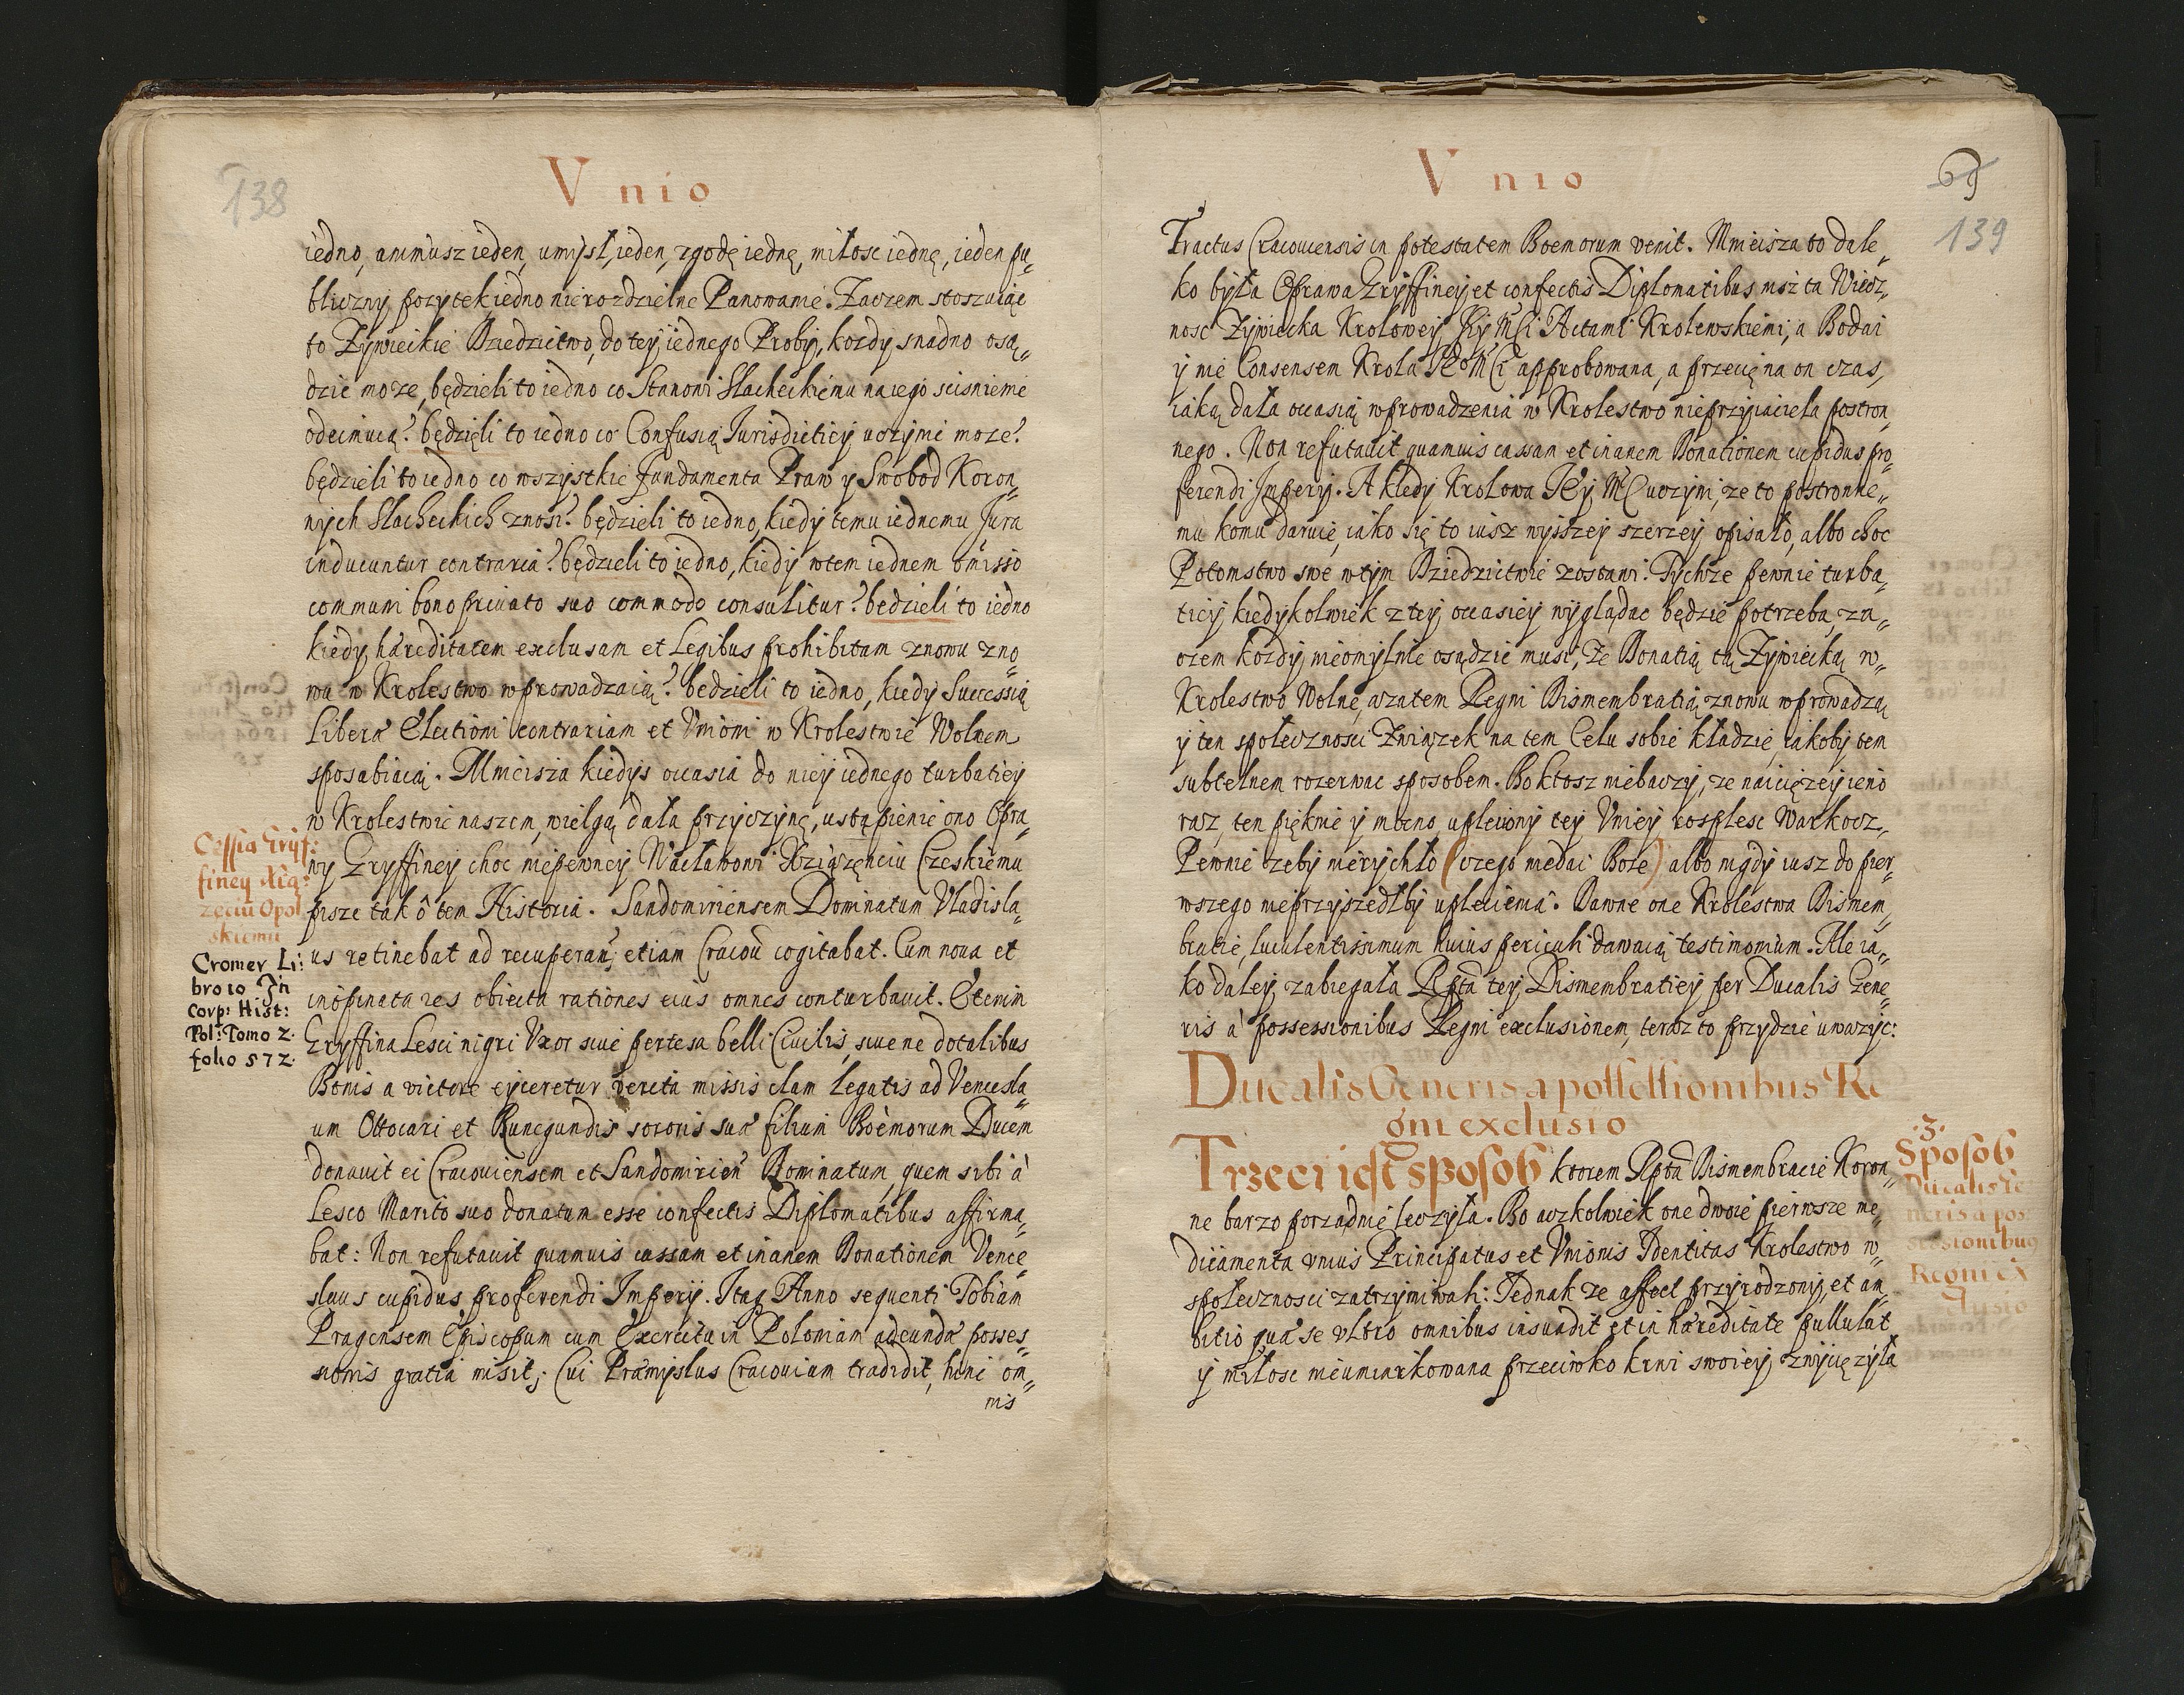 138
Vnio
iedno, animusz ieden, umysł, ieden, zgodę iednę, miłosc iednę, ieden pu„
bliczny, pozytek, iedno nierozdzielne Panowanie. Zaczem stoszuiąc
to Zywieckie Dziedzictwo, do tey iednego Proby, kozdy snadno osą„
dzic moze, będzieli to iedno co Stanowi Slacheckiemu na iego scisnienie
odeimuią? będzieli to iedno co Confusią Jurisdicticy uczynic moze?
będzieli to iedno co wszystkie fundamenta Praw y Swobod Koron„
nych Slacheckich znosi? będzieli to iedno, kiedy temu iednemu Jura
inducuntur contraria? będzieli to iedno, kiedy wtem iednem omisso
communi bono privato suo commodo consulitur? bedzieli to iedno
kiedy hæreditatem exclusam et Legibus prohibitam znowu zno„
wu w Krolestwo wprowadzaią? bedzieli to iedno, kiedy Successią
Liberæ Electioni contrariam et Unioni w Krolestwie Wolnem
sposabiaią. Mnieisza kiedys occasia do niey iednego turbaticy
w Krolestwie naszem, wielgą dała przyczynę, ustąpienie ono Opra„
wy Gryffiney choc niepewney Wacławowi Xiązęnciu Czeskiemu
pisze tak ô tem Historia. Sandomiriensem Dominatum Vladisla„
us retinebat ad recuperan: etiam Cracou cogitabat. Cum noua et
inopinata res obiecta rationes eius omnes conturbauit. Etenim
Gryffina Lesci nigri Vxor siue pertesa belli Ciuilis, siue ne dotalibus
Bonis a victore eijceretur verita missis clam Legatis ad Vencesla„
um Ottocari et Kunegundis sororis suæ filium Boëmorum Ducem
donauit ei Cracouiensem et Sandomirien Dominatum, quem sibi à
Lesco Marito suo donatum esse confectis Diplomatibus affirma„
bat: Non refutauit quamuis cassam et inanem Donationem Vence„
slaus cupidus proferendi Imperij. Itaq Anno sequenti Tobiam
Pragensem Episcopum cum Exercitu in Poloniam adeundæ posses„
sionis gratia misit; Cui Præmyslus Cracouiam tradidit, hinc om„
nis
Cessia Gryf:
finey Xią:
zęciu Opol
skiemu
Cromer Li:
bro 10 In
Corp: Hist:
Pol: Tomo 2.
folio 572.
Vnio
69
139
Tractus Cracouiensis in potestatem Boemorum venit. Mnieisza to dale„
ko była Oprawa Gryffiney et confectis Diplomatibus niż ta Wiecz„
nosc Zywiecka Krolowey Jey Mci Actami Krolewskiemi, a Bodai
y nie Consensem Krola Jeo Mci approbowana, a przecię na on czas,
iaką dała occasią wprowadzenia w Krolestwo nieprzyiaciela postron„
nego. Non refutauit quamuis cassam et inanem Donationem cupidus pro„
ferendi Imperij. A kiedy Krolowa Jey Mc uczyni, ze to postronne„
mu komu daruie, iako się to iusz wyszszey szerzey opisało, albo choc
Potomstwo swe wtym Dziedzictwie zostawi. Tychze pewnie turba„
ticy kiedykolwiek z tey occasiey wyglądac będzie potrzeba, za„
czem kozdy nieomylnie osądzic musi, Ze Donatią tą Zywiecką w„
Krolestwo Wolne, a zatem Regni Dismembratią znowu wprowadzą
y ten społecznosci Związek na tem Celu sobie kładzie, iakoby tem
subtelnem rozerwac sposobem. Bo ktosz niebaczy, ze naicięzey ieno
raz, ten pięknie y mocno, upleciony tey Uniey rosplesc Warkocz„
Pewnie zeby nierychło (czego niedai Boze) albo nigdy iusz do pier„
wszego nieprzyszedłby uplecienia. Dawne one Krolestwa Dismem„
bratie, luculentissimum huius periculi dawaią testimonium. Ale ia„
ko daley zabiegała Rpta tey Dismembraticy per Ducalis Gene„
ris à possessionibus Regni exclusionem, teraz to przydzie uwazyc:
Ducalis Generis a possessionibus Re
gni exclusio
Trzeci iest sposob ktorem Rpta Dismembracie Koron„
ne barzo porządnie leczyła. Bo aczkolwiek one dwoie pierwsze me„
dicamenta vnius Principatus et Vnionis Identitas Krolestwo w„
społecznosci zatrzymiwali: Jednak ze affect przyrodzony, et am„
bitio quæ se vltro omnibus insundit et in hæreditate pullulat
y miłosc nieumiarkowana przeciwko krwi swoiey zwycięzyła
.3.
Sposob
Ducalis Ge
neris a pos
sessionibus
Regni ex
clusio